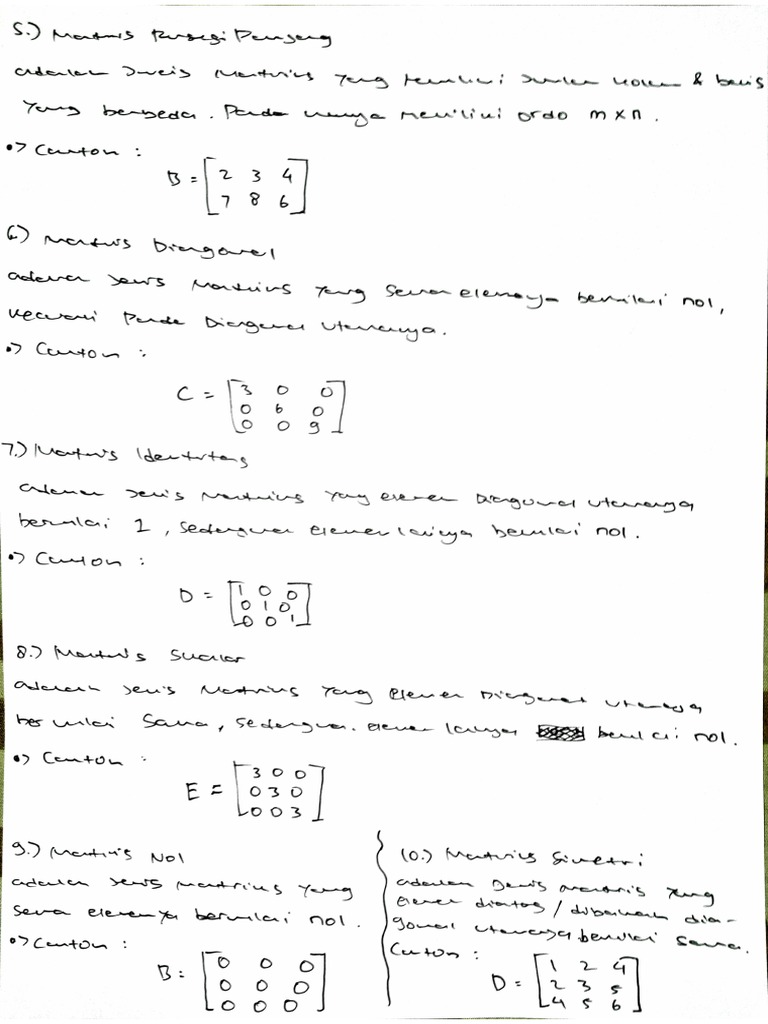 5.) Matriks Persegi Panjang
adalah Jenis Matriks Yang Memiliki Jumlah kolom & baris
Yang berbeda. Pada umumnya Memiliki ordo m x n.
•> Contoh :
B = [2 3 4
7 8 6]
6.) Matriks Diagonal
adalah Jenis Matriks Yang Semua elemenya bernilai nol,
kecuali Pada Diagonal utamanya.
•> Contoh :
C = [3 0 0
0 6 0
0 0 9]
7.) Matriks Identitas
adalah Jenis Matriks Yang elemen Diagonal utamanya
bernilai 1, sedangkan elemen lainya bernilai nol.
•> Contoh :
D = [1 0 0
0 1 0
0 0 1]
8.) Matriks Skalar
adalah Jenis Matriks Yang Elemen Diagonal utamanya
bernilai Sama, sedangkan. elemen lainya bernilai nol.
•> Contoh :
E = [3 0 0
0 3 0
0 0 3]
9.) Matriks Nol
adalah Jenis Matriks Yang
semua elemenya bernilai nol.
•> Contoh :
B = [0 0 0
0 0 0
0 0 0]
10.) Matriks Simetri
adalah Jenis Matriks Yang
elemen diatas / dibawah dia-
gonal utamanya bernilai sama.
Contoh :
D = [1 2 4
2 3 5
4 5 6]